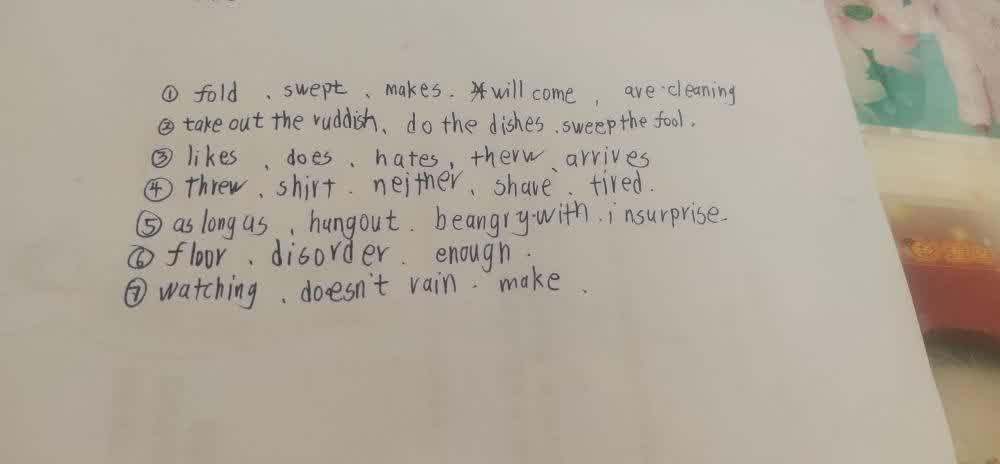 ① fold 、 swept 、 makes . will come , are cleaning
② take out the ruddish、 do the dishes .sweep the fool .
③ likes 、 does 、 hates , therw、arrives
④ threw 、 shirt . neither、 share 、 tired .
⑤ as long as 、 hungout . beangry·with . insurprise.
⑥ floor 、 disorder . enough .
⑦ watching 、 doesn't rain . make 、